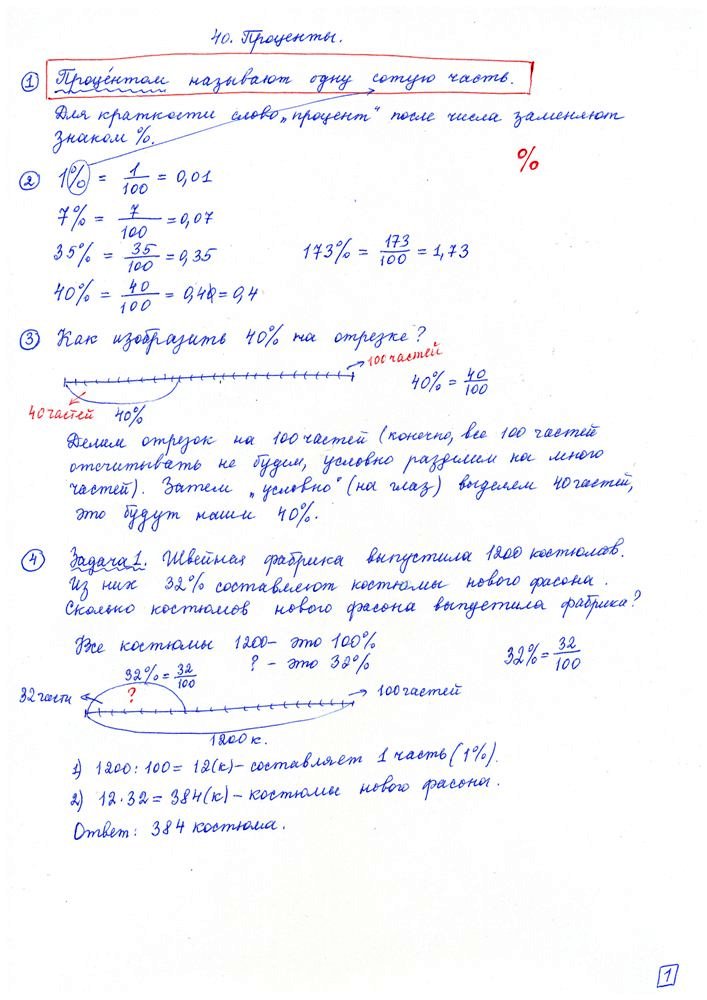 40. Проценты.
① Процéнтом называют одну сотую часть.
Для краткости слово „процент“ после числа заменяют
знаком %.
%
② 1% = 1/100 = 0,01
7% = 7/100 = 0,07
35% = 35/100 = 0,35 173% = 173/100 = 1,73
40% = 40/100 = 0,40 = 0,4
③ Как изобразить 40% на отрезке?
100 частей
40% = 40/100
40 частей 40%
Делим отрезок на 100 частей (конечно, все 100 частей
отсчитывать не будем, условно разделим на много
частей). Затем „условно“ (на глаз) выделяем 40 частей,
это будут наши 40%.
④ Задача 1. Швейная фабрика выпустила 1200 костюмов.
Из них 32% составляют костюмы нового фасона.
Сколько костюмов нового фасона выпустила фабрика?
Все костюмы 1200 – это 100%
? – это 32% 32% = 32/100
32% = 32/100
32 части ? 100 частей
1200 к.
1) 1200 : 100 = 12 (к) – составляет 1 часть (1%).
2) 12 · 32 = 384 (к) – костюмы нового фасона.
Ответ: 384 костюма.
1